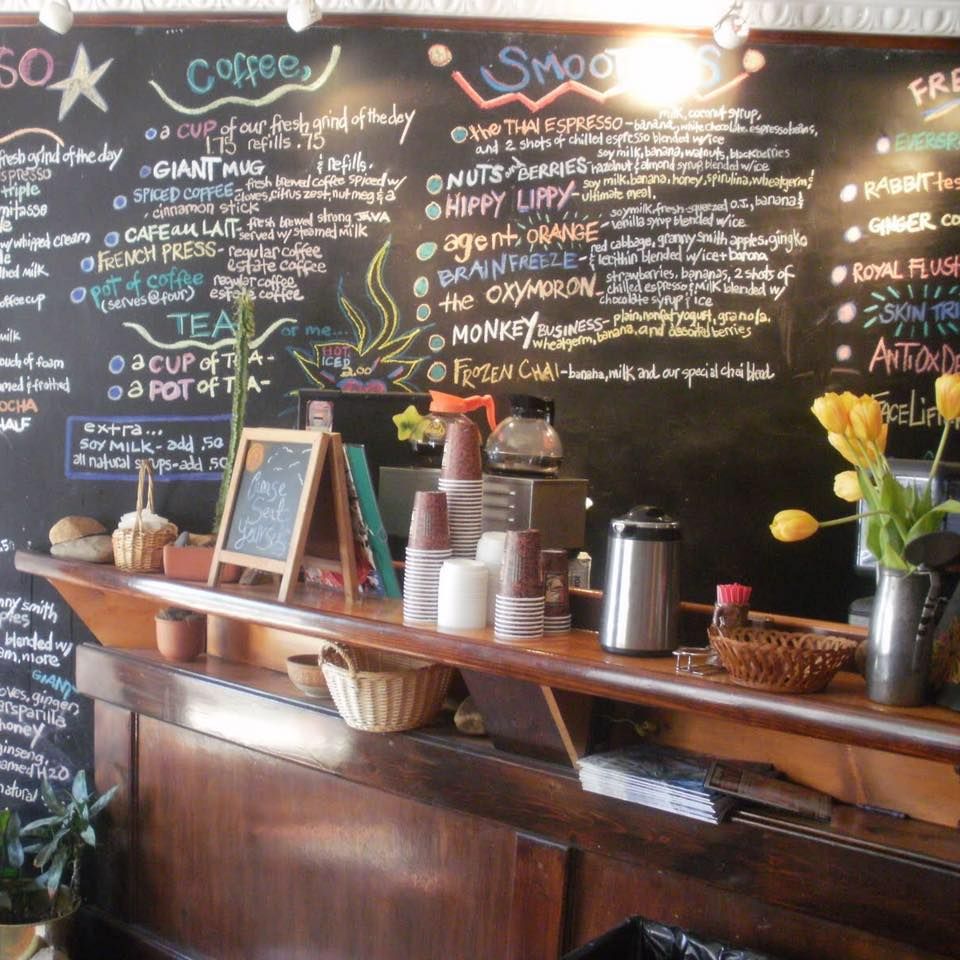 SO
fresh grind of the day
triple
w/whipped cream
coffee cup
milk
touch of foam
HALF
Coffee,
a CUP of our fresh grind of the day
1.75 refills .75
GIANT MUG & refills.
SPICED COFFEE - fresh brewed coffee spiced w/
cloves, citrus zest, nutmeg & a
cinnamon stick
CAFE au LAIT - fresh brewed strong JAVA
served w/ steamed milk
FRENCH PRESS - regular coffee
estate coffee
POT of coffee regular coffee
(serves @ four) estate coffee
TEA or me...
a CUP of TEA -
a POT of TEA -
HOT
ICED 2.00
extra...
SOY MILK - add .50
all natural syrups - add .50
SMOOTHIES
the THAI ESPRESSO - milk, coconut syrup,
banana, white chocolate, espresso beans,
and 2 shots of chilled espresso blended w/ice
NUTS or BERRIES - soy milk, banana, walnuts, blackberries
hazelnut & almond syrup blended w/ice
HIPPY LIPPY - soy milk, banana, honey, spirulina, wheatgerm &
ultimate meal.
agent ORANGE - soymilk, fresh-squeezed O.J., banana &
vanilla syrup blended w/ice
BRAINFREEZE - red cabbage, granny smith apples, gingko
& lecithin blended w/ice + banana
the OXYMORON - strawberries, bananas, 2 shots of
chilled espresso & milk blended w/
chocolate syrup & ice
MONKEY BUSINESS - plain, nonfat yogurt, granola,
wheatgerm, banana, and assorted berries
FROZEN CHAI - banana, milk and our special chai blend
FRE
EVERGR
RABBIT tes
GINGER CO
ROYAL FLUSH
SKIN TRI
ANTIOXDE
FACELIFT
Please
Seat
yourself
nny smith
ples
blended w/
am, more
GIANT
oves, ginger,
arsparilla
honey
ginseng,
amed H2O
natural